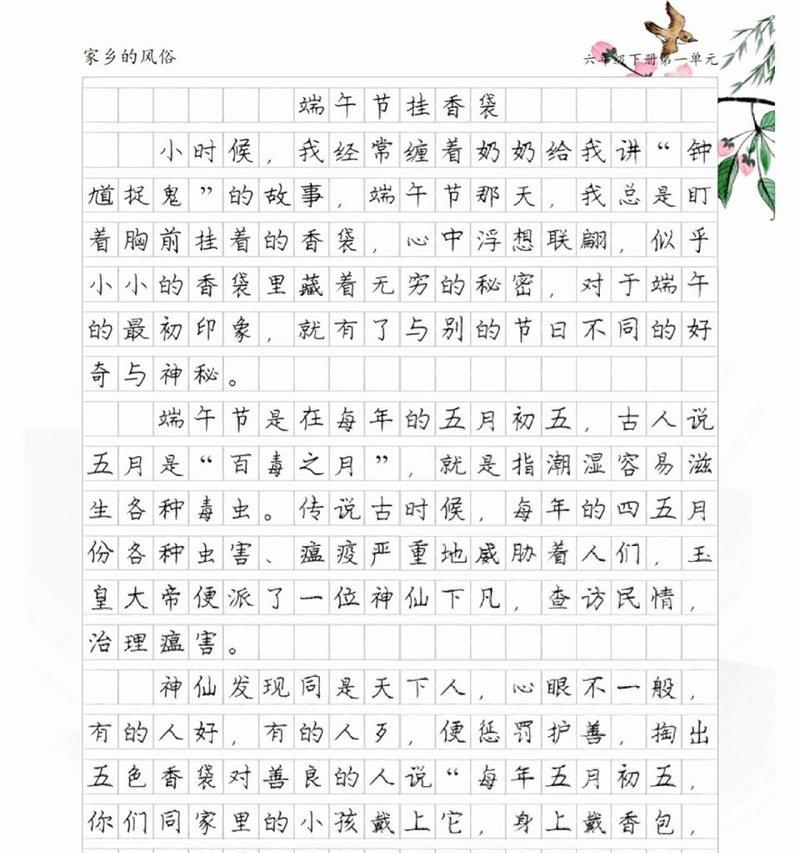 家乡的风俗
六年级下册第一单元
端午节挂香袋
小时候，我经常缠着奶奶给我讲“钟
馗捉鬼”的故事，端午节那天，我总是盯
着胸前挂着的香袋，心中浮想联翩，似乎
小小的香袋里藏着无穷的秘密，对于端午
的最初印象，就有了与别的节日不同的好
奇与神秘。
端午节是在每年的五月初五，古人说
五月是“百毒之月”，就是指潮湿容易滋
生各种毒虫。传说古时候，每年的四五月
份各种虫害、瘟疫严重地威胁着人们，玉
皇大帝便派了一位神仙下凡，查访民情，
治理瘟害。
神仙发现同是天下人，心眼不一般，
有的人好，有的人歹，便惩罚护善，掏出
五色香袋对善良的人说“每年五月初五，
你们同家里的小孩戴上它，身上戴香包，